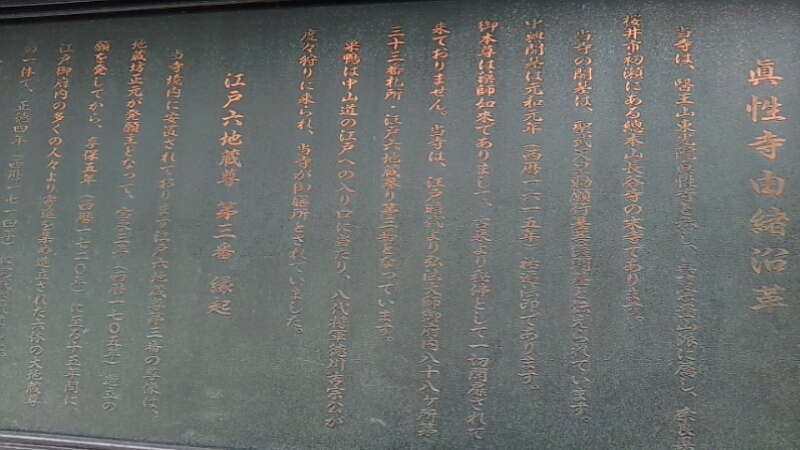 眞性寺由緒沿革
当寺は、醫王山東光院眞性寺と称し、真言宗豊山派に属し、奈良県
桜井市初瀬にある總本山長谷寺の末寺であります。
当寺の開基は、聖武天皇勅願行基菩薩開基と伝えられています。
中興開基は元和元年（西暦一六一五年）祐遍法印であります。
御本尊は薬師如来でありまして、古来より秘佛として一切開扉されて
来ておりません。当寺は、江戸時代より弘法大師御府内八十八ケ所第
三十三番札所・江戸六地蔵参り第三番となっています。
巣鴨は中山道の江戸への入り口に当たり、八代将軍徳川吉宗公が
度々狩りに来られ、当寺が御膳所とされていました。
江戸六地蔵尊 第三番 縁起
当寺境内に安置されております江戸六地蔵尊第三番の尊像は、
地蔵坊正元が発願主となって、宝永二年（西暦一七〇五年）造立の
願を発してから、享保五年（西暦一七二〇年）に至る十五年間に、
江戸御府内の多くの人々より寄進を
造立された六体の大地蔵尊
の一体で、正徳四年（西暦一七一四年）に